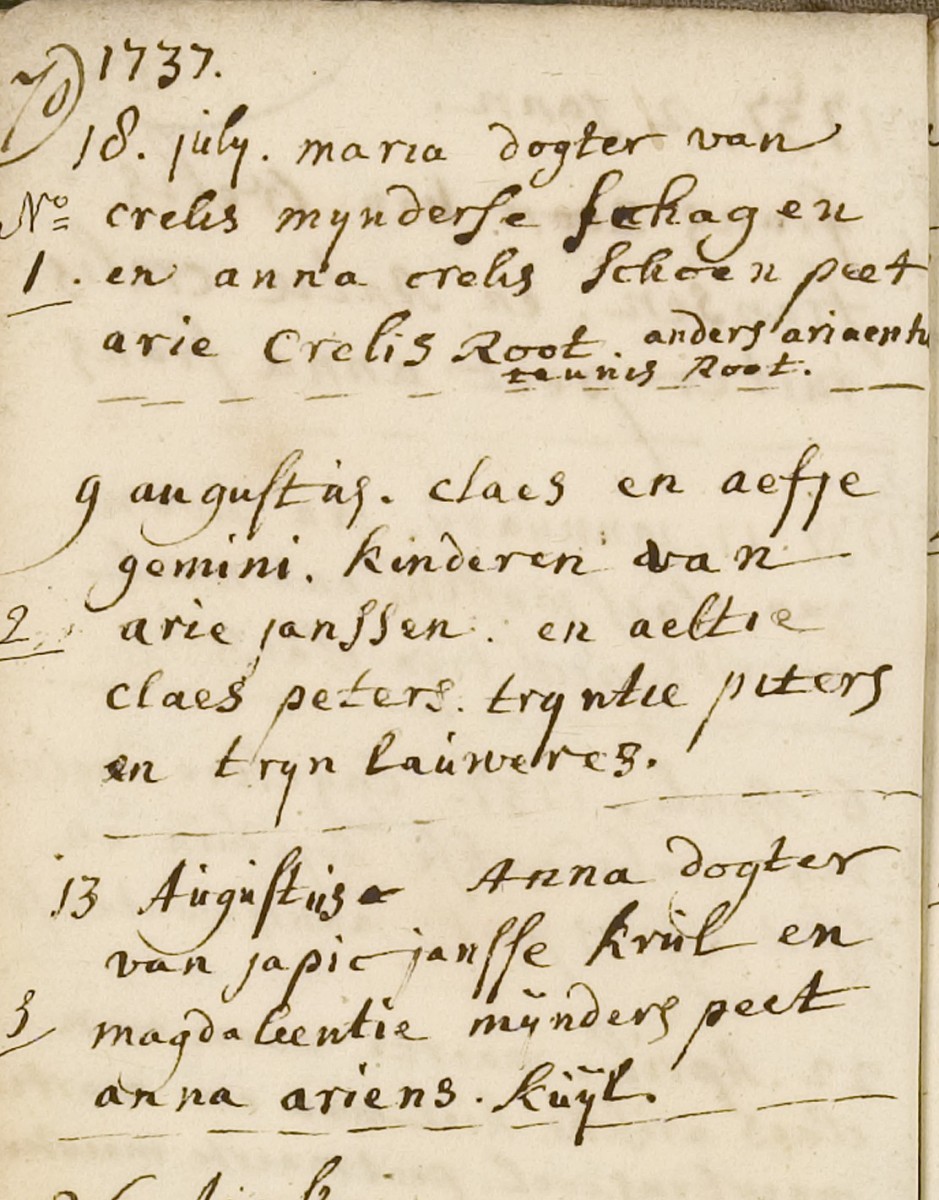 70 1737.
18. july. maria dogter van
No crelis mynderse schagen
1. en anna crelis Schoen peet
arie Crelis Root anders ariaenti
teunis Root.
9 augustus. claes en aefje
gemini. kinderen van
2 arie janssen. en aeltie
claes peters. tryntie piters
en tryn lauweres.
13 Augustus Anna dogter
van japic jansse krul en
3 magdaleentie mÿnders peet
anna ariens. Kuÿl.